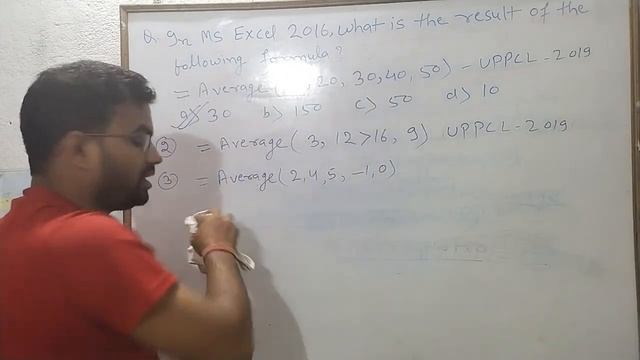 Q. In MS Excel 2016, what is the result of the
following formula?
= Average( 20, 30, 40, 50) - UPPCL - 2019
a) 30 b) 150 c) 50 d) 10
② = Average( 3, 12>16, 9) UPPCL - 2019
③ = Average( 2, 4, 5, -1, 0)